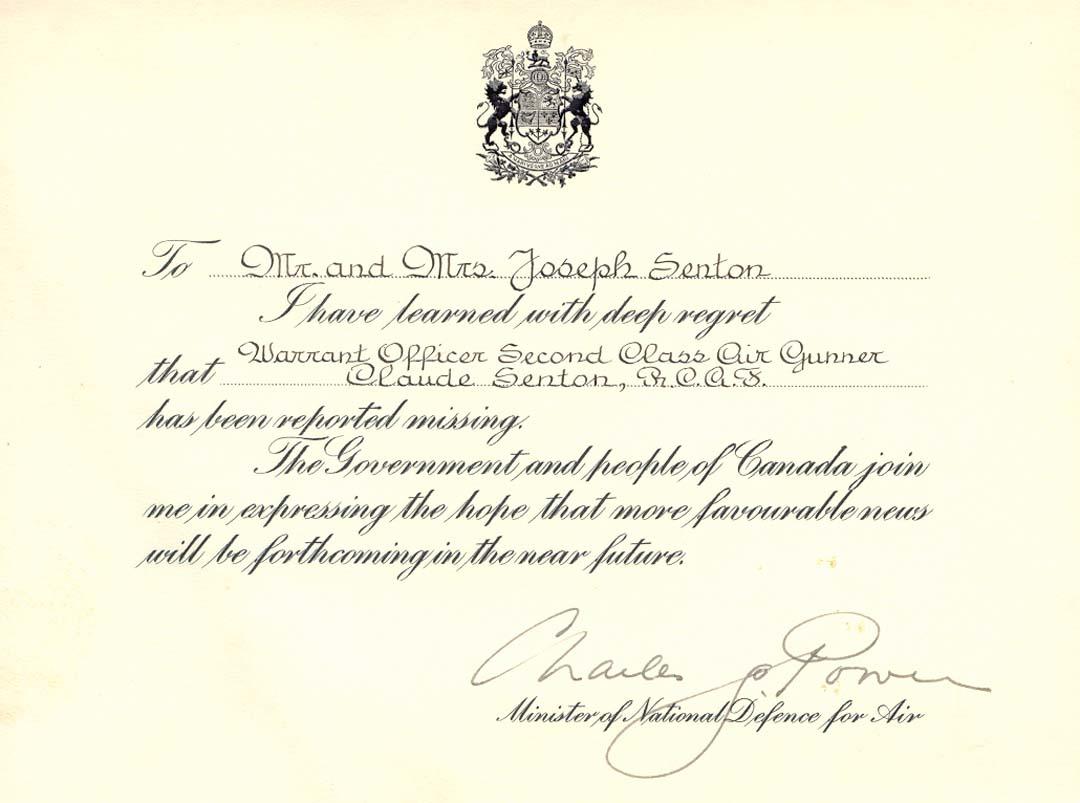 To Mr. and Mrs. Joseph Senton
I have learned with deep regret
that Warrant Officer Second Class Air Gunner
Claude Senton, R.C.A.F.
has been reported missing.
The Government and people of Canada join
me in expressing the hope that more favourable news
will be forthcoming in the near future.
Charles G Power
Minister of National Defence for Air